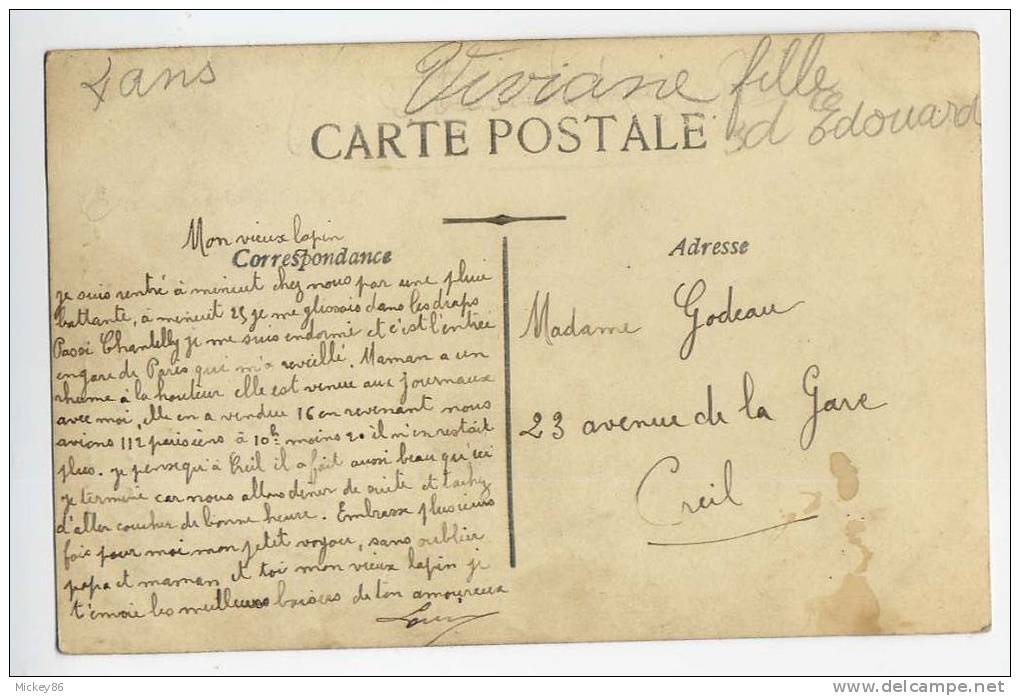 4 ans
Viviane fille
d Edouard
CARTE POSTALE
Mon vieux lapin
Correspondance
je suis rentré à minuit chez nous par une pluie
battante, à minuit 25 je me glissais dans les draps
Passé Chantelly je me suis endormi et c'est l'entrée
en gare de Paris qui m'a reveillé. Maman a un
rhume à la hauteur elle est venue aux journaux
avec moi, elle en a vendu 16 en revenant nous
avions 112 parisiens à 10h moins 20 il n'en restait
plus. je pense qu'à Creil il a fait aussi beau qu'ici
je termine car nous allons diner de suite et tachez
d'aller coucher de bonne heure. Embrasse plusieurs
fois pour moi mon petit voyou, sans oublier
papa et maman et toi mon vieux lapin je
t'envoie les meilleurs baisers de ton amoureux
Adresse
Madame Godeau
23 avenue de la Gare
Creil
Mickey86
www.delcampe.net